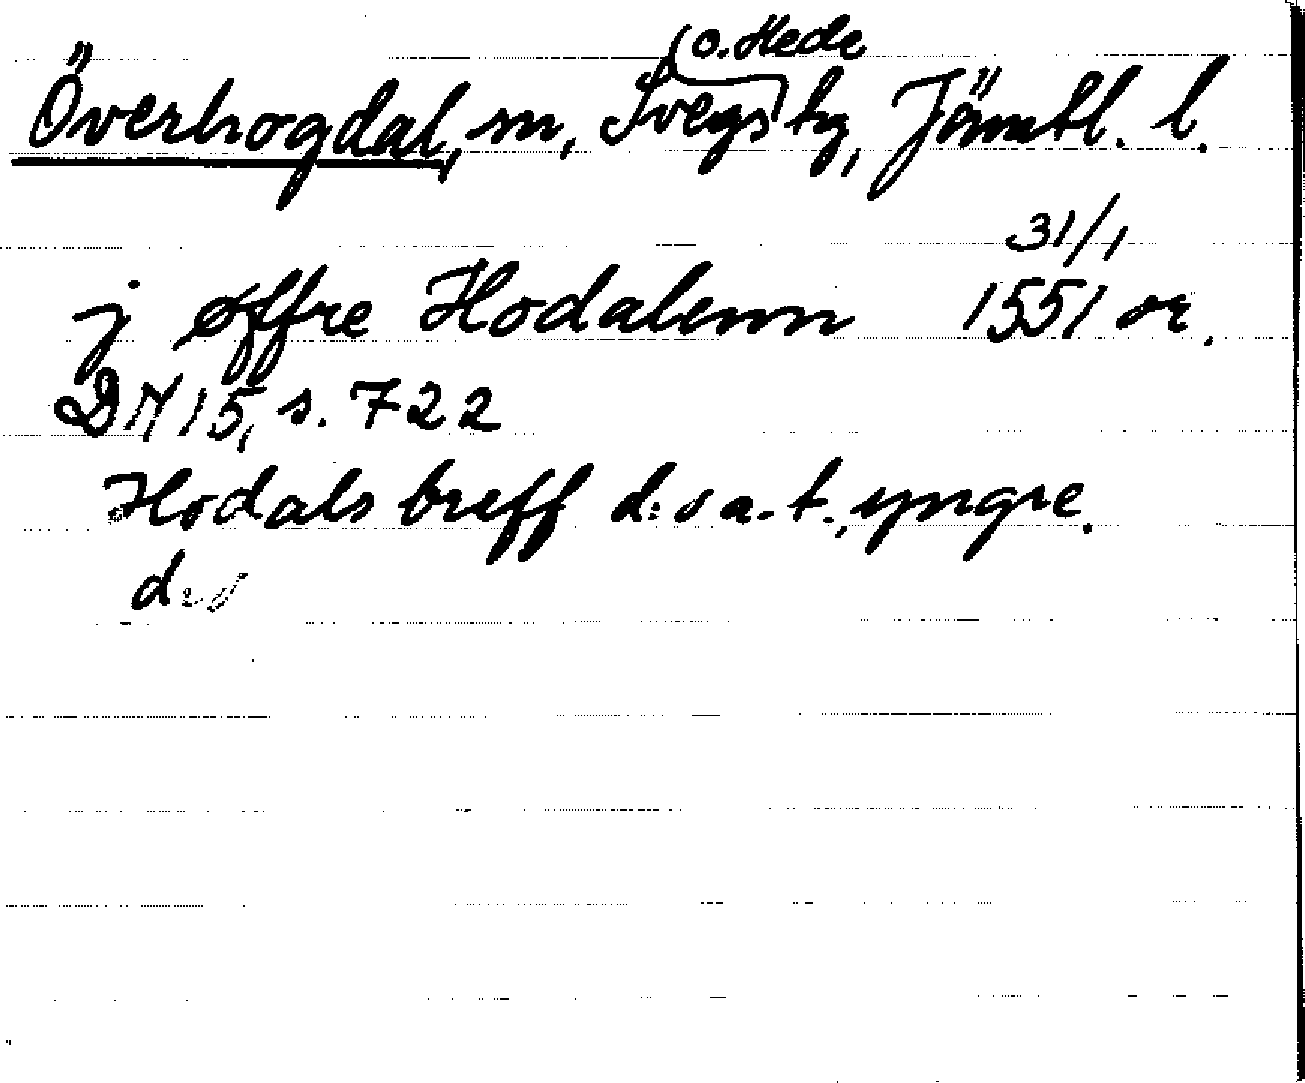 (o. Hede
Överhogdal, sn, Svegs tg, Jämtl. l.
31/1
j øffre Hodalenn 1551 or.
DN 15, s. 722
Hodals breff d:o a.t., yngre.
d:o